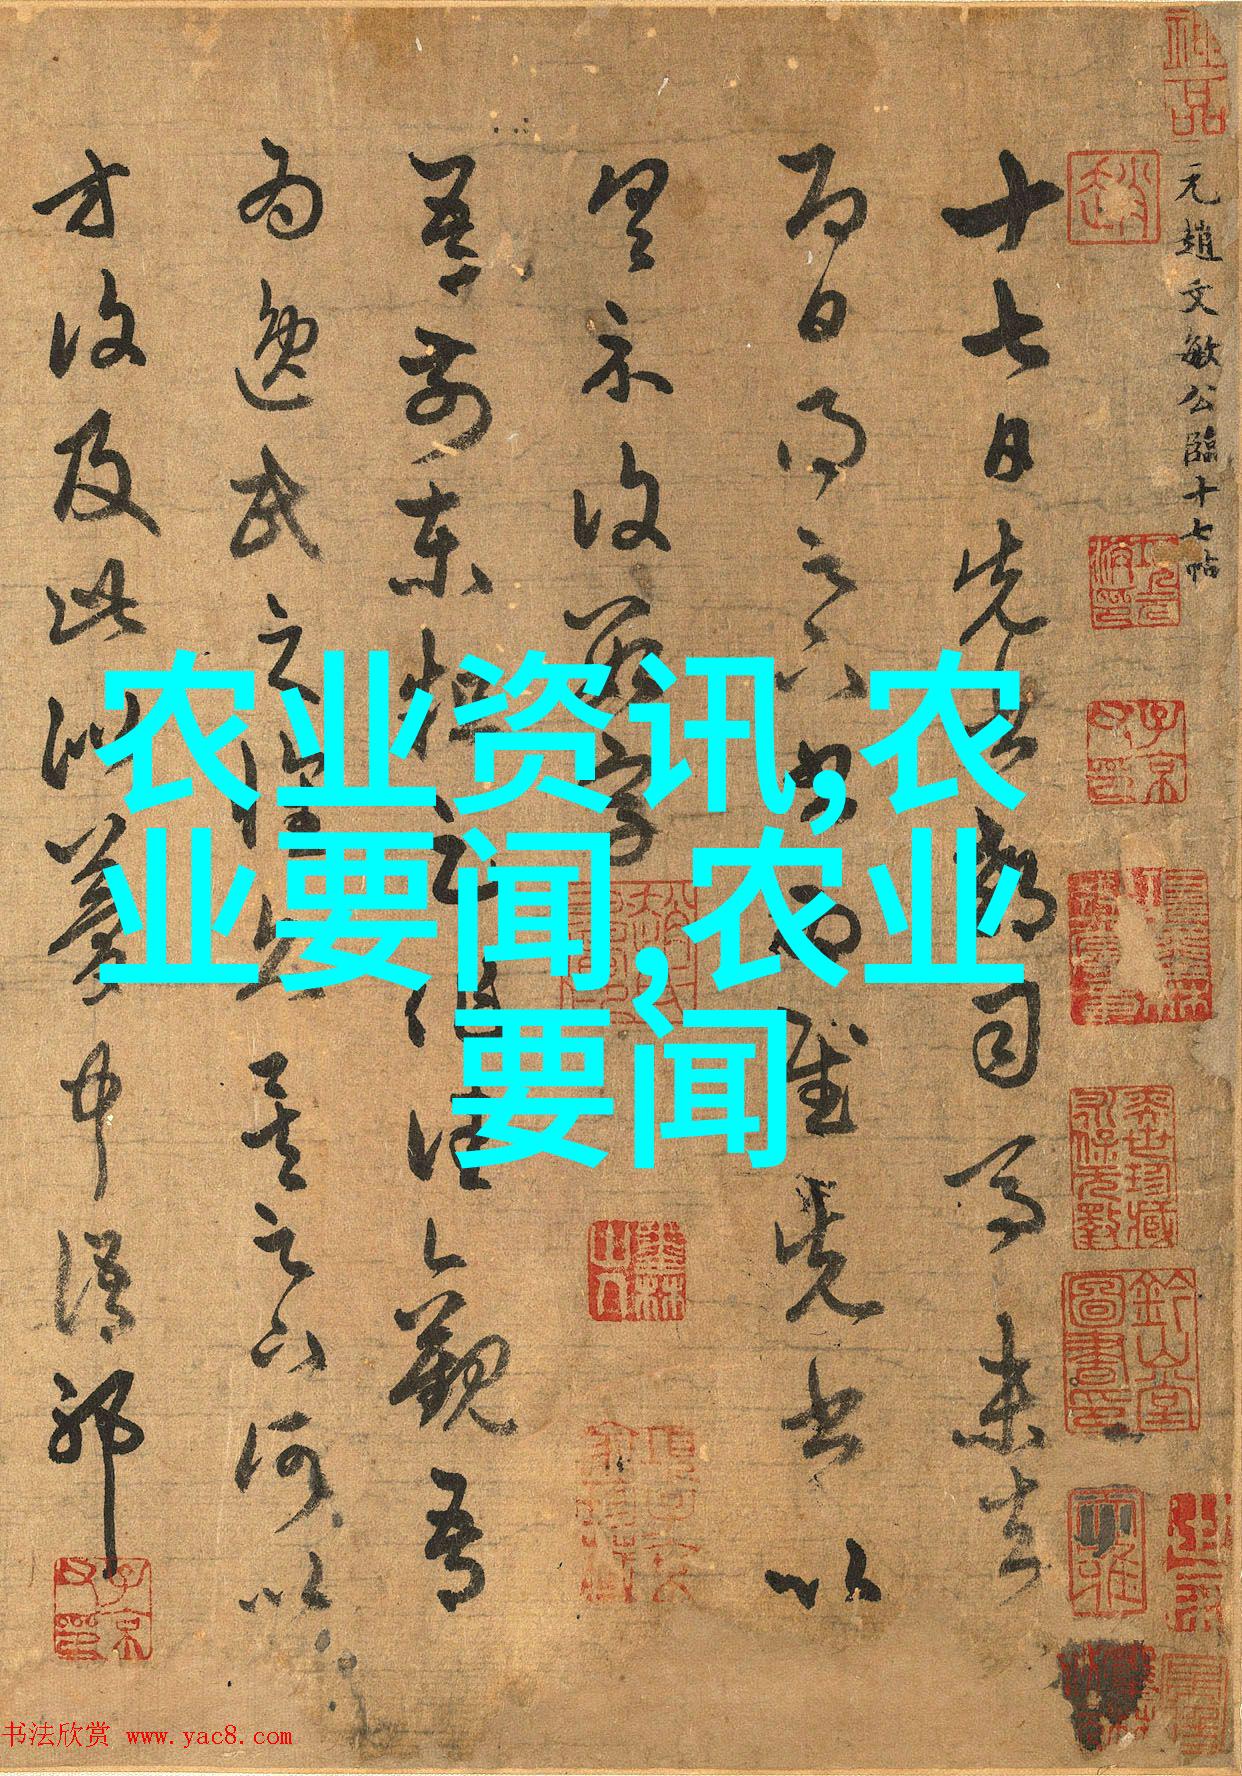 农业资讯,农
业要闻,农业
要闻
神品
元趙文敏公臨十七帖
趙
鈐山堂圖書印
十七日先書郗司馬未去
即日得足下書為慰先書以
具示復數字
吾前東粗足作佳觀吾
為逸民之懷久矣足下何以
方復及此似夢中語耶
子京父印
书法欣赏 www.yac8.com